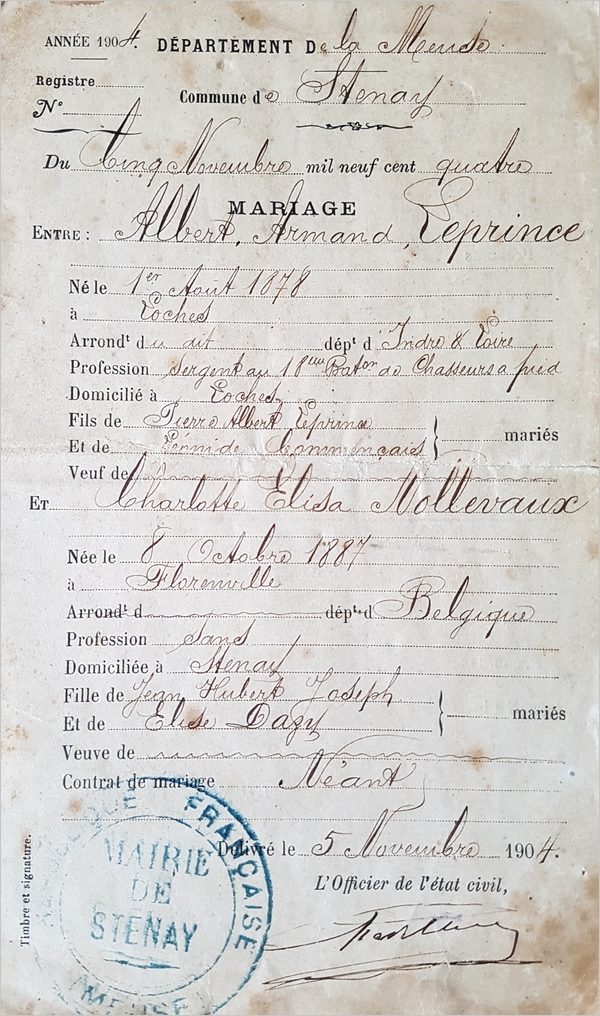 ANNÉE 1904. DÉPARTEMENT De la Meuse.
Registre
N° Commune de Stenay
Du Cinq Novembre mil neuf cent quatre
MARIAGE
ENTRE : Albert, Armand, Leprince
Né le 1er Août 1878
à Loches
Arrondt du dit dépt d'Indre & Loire
Profession Sergent au 18eme Baton de Chasseurs à pied
Domicilié à Loches
Fils de Pierre Albert Leprince
Et de Commençais mariés
Veuf de
ET Charlotte Elisa Nollevaux
Née le 8 Octobre 1887
à Florenville
Arrondt d dépt d Belgique
Profession Sans
Domiciliée à Stenay
Fille de Jean Hubert Joseph
Et de Elise Dazy mariés
Veuve de
Contrat de mariage Néant
Délivré le 5 Novembre 1904.
L'Officier de l'état civil,
Timbre et signature.
RÉPUBLIQUE FRANÇAISE
MAIRIE
DE
STENAY
MEUSE